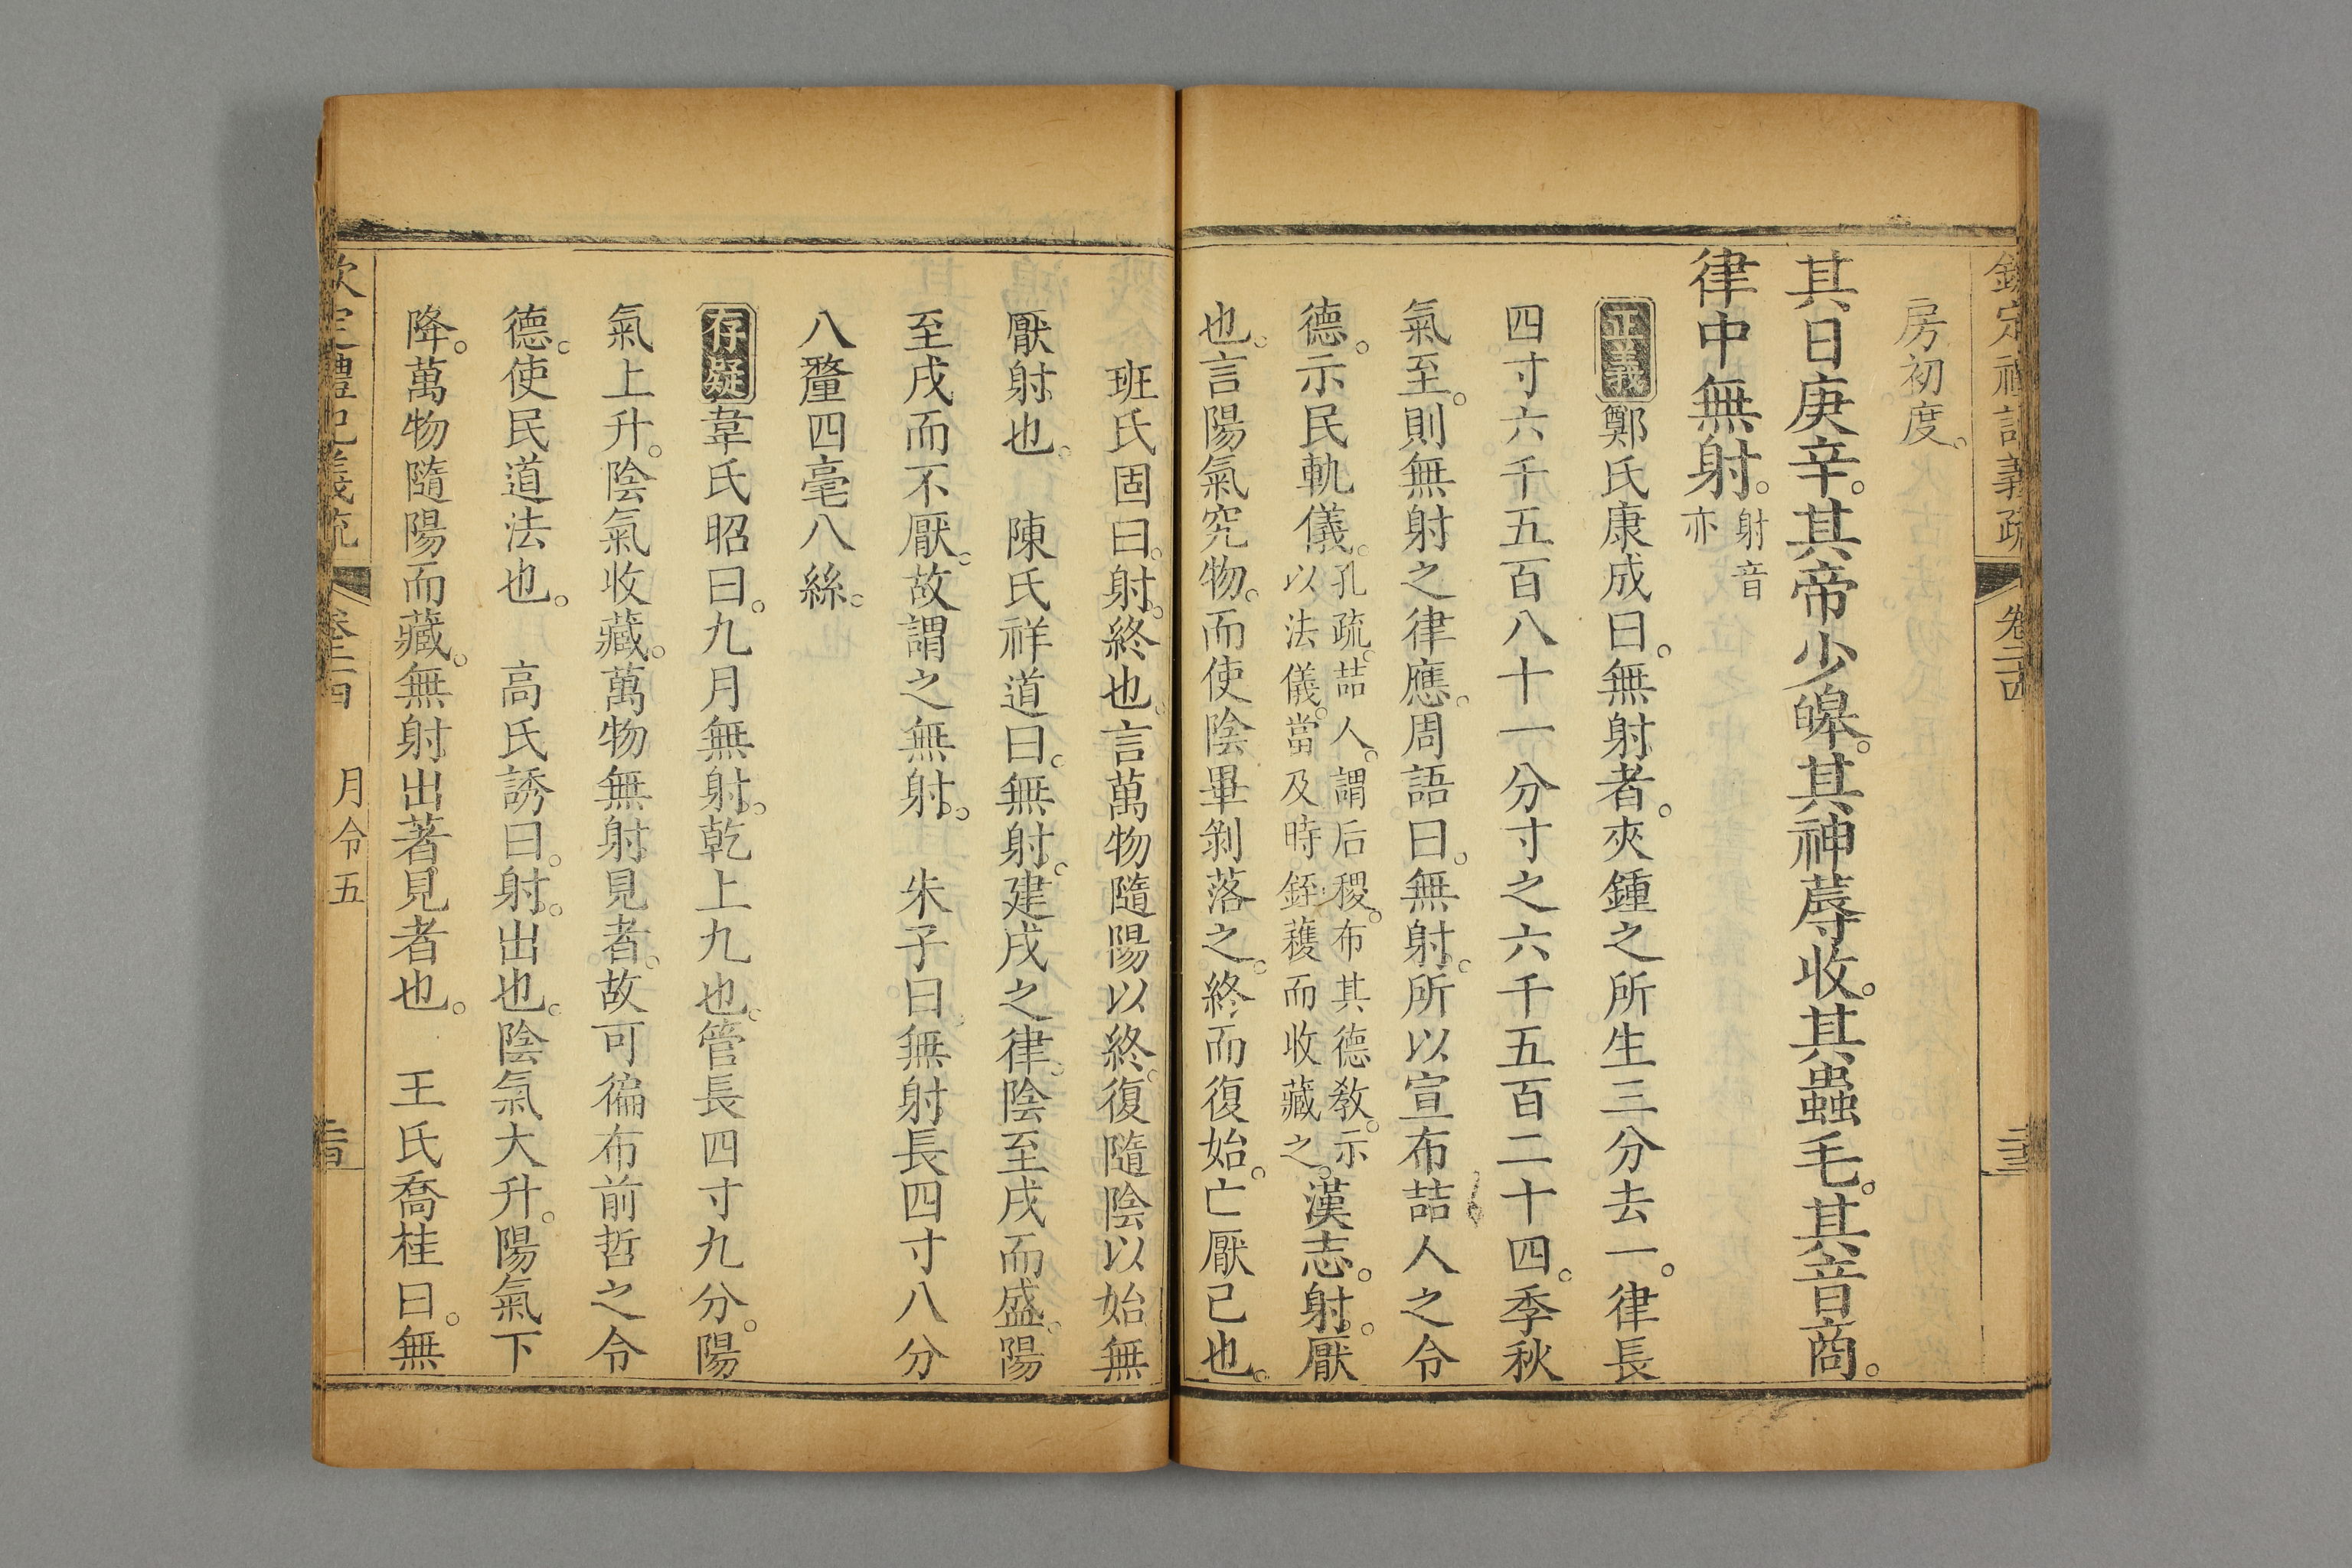 欽定禮記義疏 卷二十四
房初度。
其日庚辛。其帝少皞。其神蓐收。其蟲毛。其音商。
律中無射。射音亦
正義鄭氏康成曰。無射者。夾鍾之所生三分去一。律長
四寸六千五百八十一分寸之六千五百二十四。季秋
氣至。則無射之律應。周語曰。無射。所以宣布喆人之令
德。示民軌儀。孔疏。喆人。謂后稷。布其德教。示以法儀。當及時銍穫而收藏之。漢志。射。厭
也。言陽氣究物。而使陰畢剝落之。終而復始。亡厭已也。
班氏固曰。射。終也。言萬物隨陽以終。復隨陰以始無
厭射也。 陳氏祥道曰。無射。建戌之律。陰至戌而盛。陽
至戌而不厭。故謂之無射。 朱子曰無射長四寸八分
八釐四毫八絲。
存疑韋氏昭曰。九月無射。乾上九也。管長四寸九分。陽
氣上升。陰氣收藏。萬物無射見者。故可徧布前哲之令
德。使民道法也。 高氏誘曰。射。出也。陰氣大升。陽氣下
降。萬物隨陽而藏。無射出著見者也。 王氏喬桂曰。無
欽定禮記義疏 卷二十四 月令五